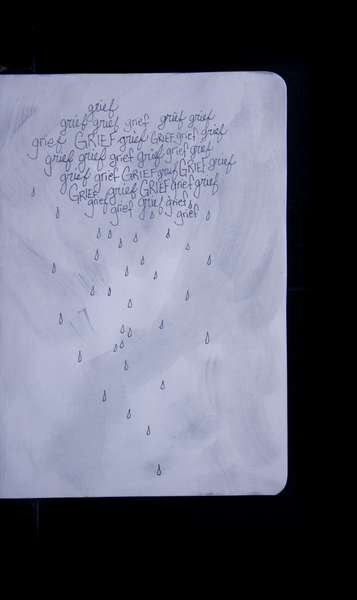 grief
grief grief grief grief grief
grief GRIEF grief GRIEF grief grief
grief grief grief grief grief grief
grief grief GRIEF grief GRIEF grief
GRIEF grief GRIEF grief grief
grief grief grief grief grief